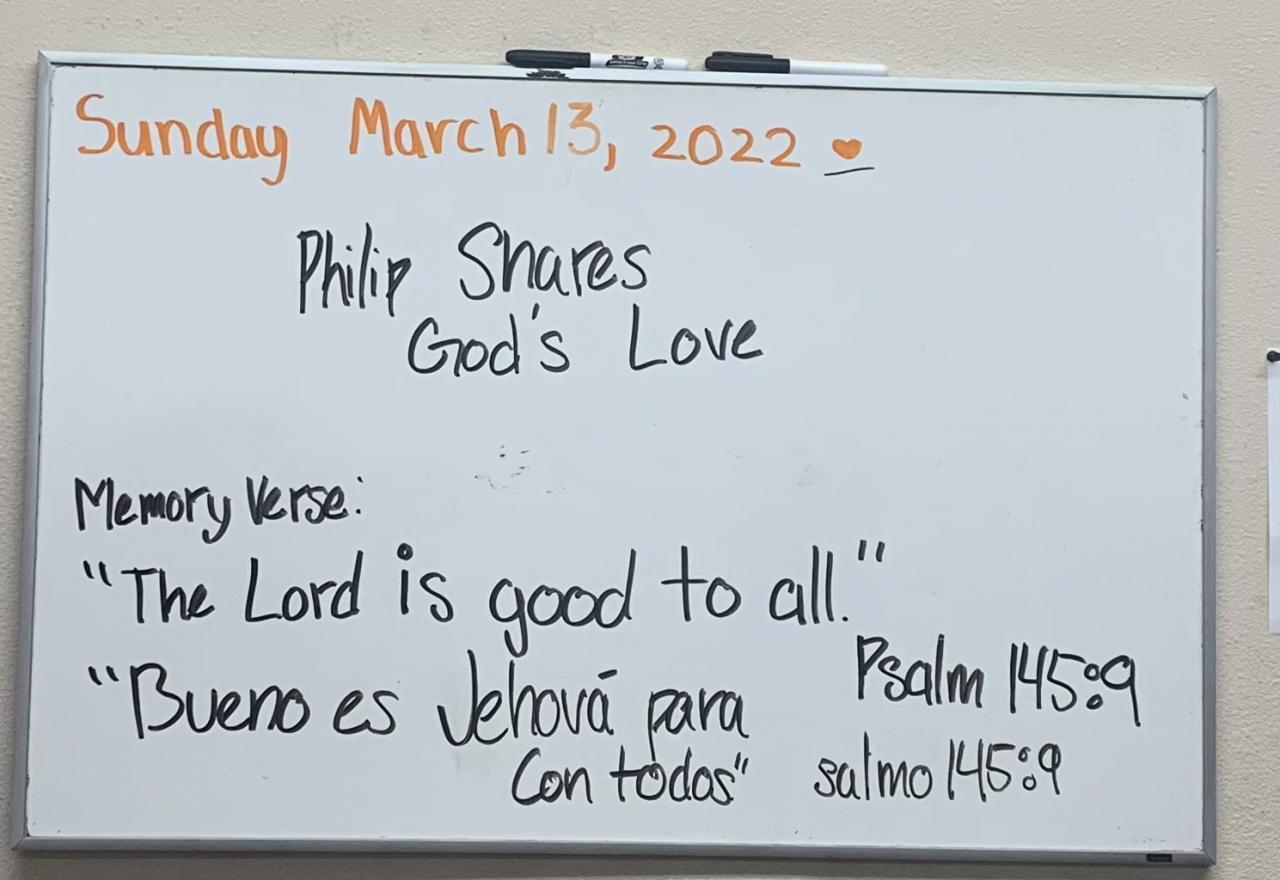 Sunday March 13, 2022 ♥
Philip Shares
God's Love
Memory Verse:
"The Lord is good to all."
Psalm 145:9
"Bueno es Jehová para
con todos"
salmo 145:9